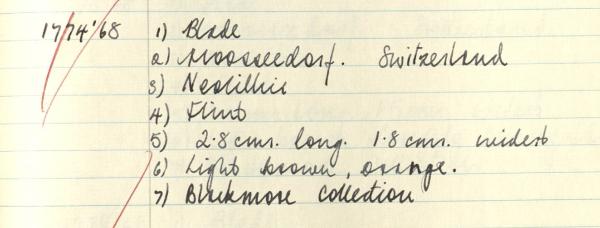 1774'68 1) Blade
2) Moosseedorf. Switzerland
3) Neolithic
4) Flint
5) 2.8 cms. long. 1.8 cms. widest
6) Light brown, orange.
7) Blackmore Collection